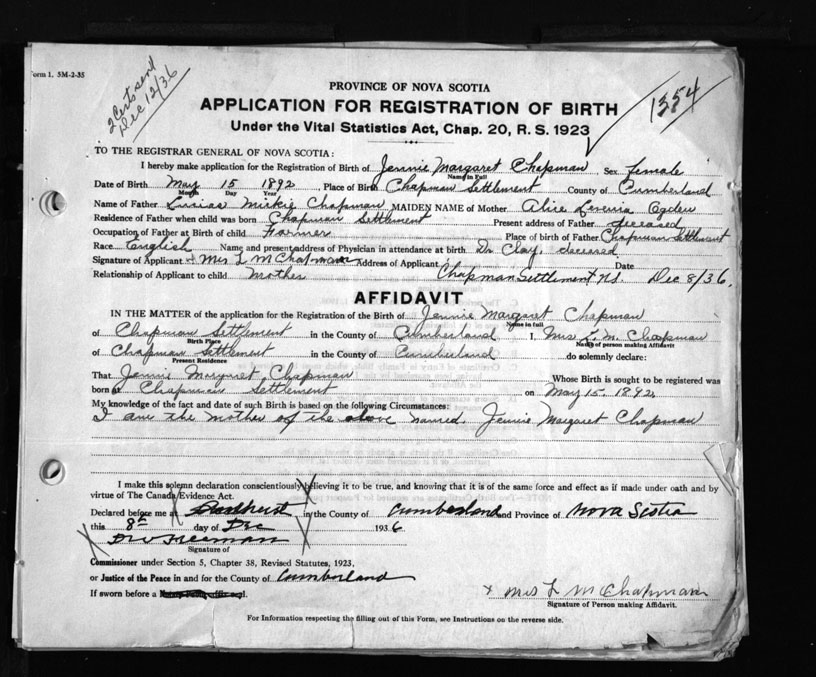 Form 1. 5M-2-35
2 Certs sent
Dec 12/36
1354
PROVINCE OF NOVA SCOTIA
APPLICATION FOR REGISTRATION OF BIRTH
Under the Vital Statistics Act, Chap. 20, R. S. 1923
TO THE REGISTRAR GENERAL OF NOVA SCOTIA:
I hereby make application for the Registration of Birth of Jennie Margaret Chapman Sex female
Name in Full
Date of Birth May 15 1892, Place of Birth Chapman Settlement County of Cumberland
Month Day Year
Name of Father Lucias Mickie Chapman MAIDEN NAME of Mother Alice Levenia Ogden
Residence of Father when child was born Chapman Settlement Present address of Father deceased
Occupation of Father at Birth of child Farmer Place of birth of Father Chapman Settlement
Race English Name and present address of Physician in attendance at birth. Dr Clay, deceased
Signature of Applicant + Mrs L M Chapman Address of Applicant Chapman Settlement NS. Date Dec 8/36.
Relationship of Applicant to child mother
AFFIDAVIT
IN THE MATTER of the application for the Registration of the Birth of Jennie Margaret Chapman
Name in full
of Chapman Settlement in the County of Cumberland I, Mrs L. M. Chapman
Birth Place Name of person making Affidavit
of Chapman Settlement in the County of Cumberland do solemnly declare:
Present Residence
That Jennie Margret Chapman Whose Birth is sought to be registered was
born at Chapman Settlement on May 15. 1892
My knowledge of the fact and date of such Birth is based on the following Circumstances:
I am the mother of the above named Jennie Margaret Chapman
I make this solemn declaration conscientiously believing it to be true, and knowing that it is of the same force and effect as if made under oath and by
virtue of The Canada Evidence Act.
Declared before me at Amherst in the County of Cumberland and Province of Nova Scotia
this 8th day of Dec 1936
Freeman
Signature of
Commissioner under Section 5, Chapter 38, Revised Statutes, 1923,
or Justice of the Peace in and for the County of Cumberland
If sworn before a
+ Mrs L M Chapman
Signature of Person making Affidavit.
For Information respecting the filling out of this Form, see Instructions on the reverse side.